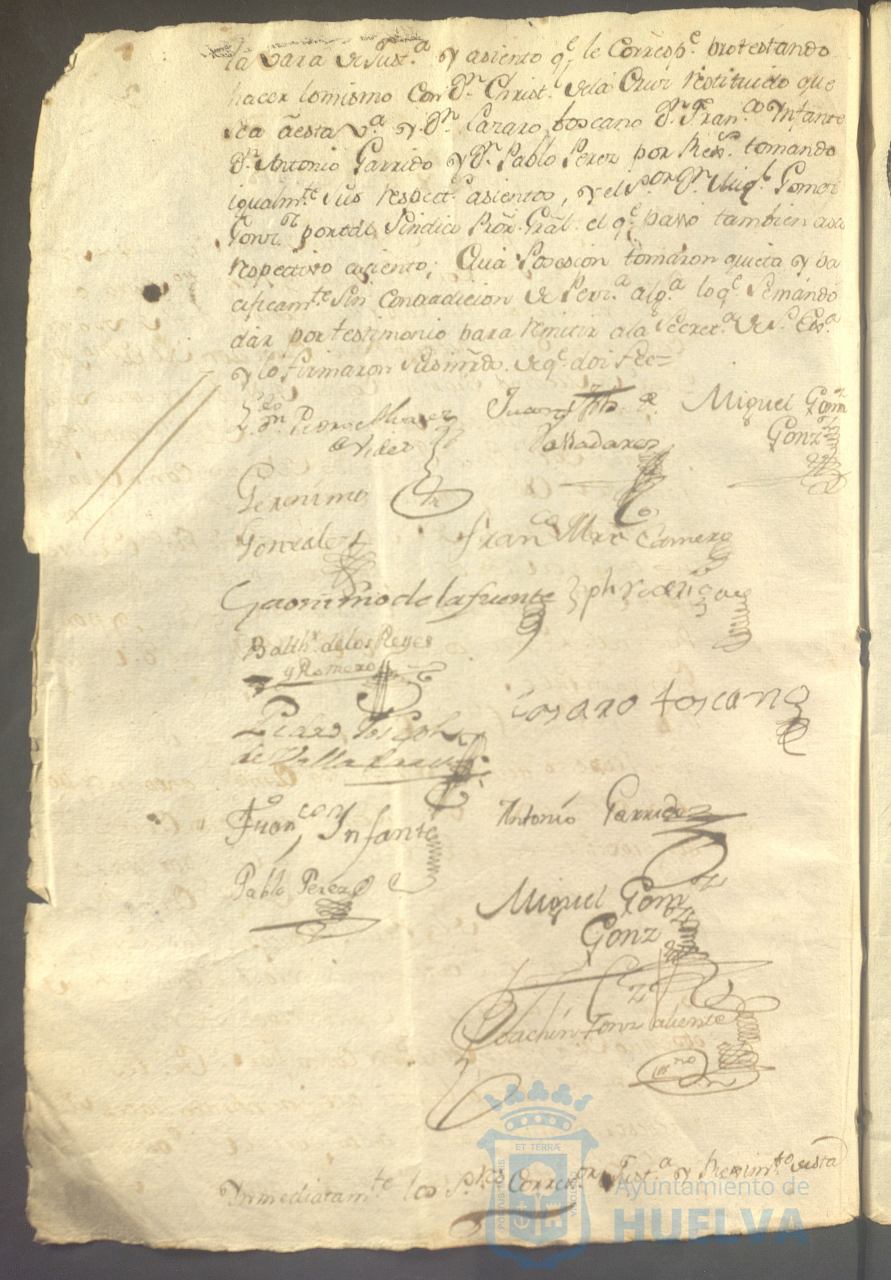 la vara de Just.ª y asiento q.e le Corresp.e protestando
hacer lo mismo Con D.n Christ.l de la Cruz restituido que
sea a esta V.ª y D.n Lazaro toscano D.n Fran.co Ynfante
D.n Antonio Garrido y D.n Pablo Perez por Rex.s tomando
igualm.te sus respect.s asientos, y el S.or D.n Mig.l Gomez
Gonz.z por tal Sindico Pror. Gral. el q.e passo tambien a su
respectivo asiento; Cuia Posesion tomaron quieta y pa
cificam.te sin Contradicion de Pers.ª alg.ª lo q.e se mando
dar por testimonio para remitir a la Secret.ª de S. Exª
y lo firmaron sus mrds. de q.e doi fee=
L.do D.n Pedro Alvarez
Juan Jph. de
Valladares
Miguel Gomz
Gonz
Geronimo
Gonzalez
Franco Mrn Camero
Geronimo de la fuente
Jph rodrigue
Balthr. de los Reyes
y Romero
Pedro Joseph
Losaro toscano
Franco Ynfante
Antonio Garrido
Pablo Perez
Miguel Gomz
Gonz
Joachin Gonz aliente
ssno
ET TERRÆ
PORTUS MARIS
CUSTODIA
Ynmediatam.te los S.res Correx.or Just.ª y Reximto desta
Ayuntamiento de
HUELVA